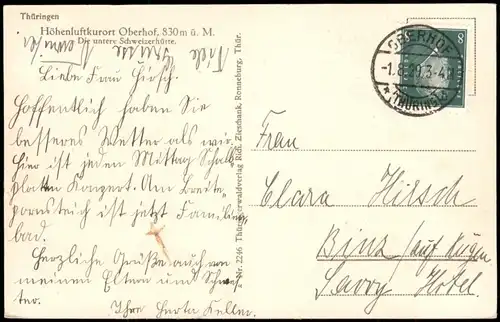 Thüringen
Höhenluftkurort Oberhof, 830 m ü. M.
Die untere Schweizerhütte.
Viele Grüsse
Liebe Frau Hirsch.
Hoffentlich haben Sie
besseres Wetter als wir.
Hier ist jeden Mittag Schall
platten Konzert. Am
ist jetzt Familien
bad.
Herzliche Grüße auch von
meinen Eltern und Schwes
ter.
Ihre Herta Keller.
Nr. 2246 Thüringerwaldverlag Rich. Zieschank, Ronneburg, Thür.
8
OBERHOF
-1.8.29.3-4
(THÜRING.)
Frau
Clara Hirsch
Binz/auf Rügen
Savoy Hotel.